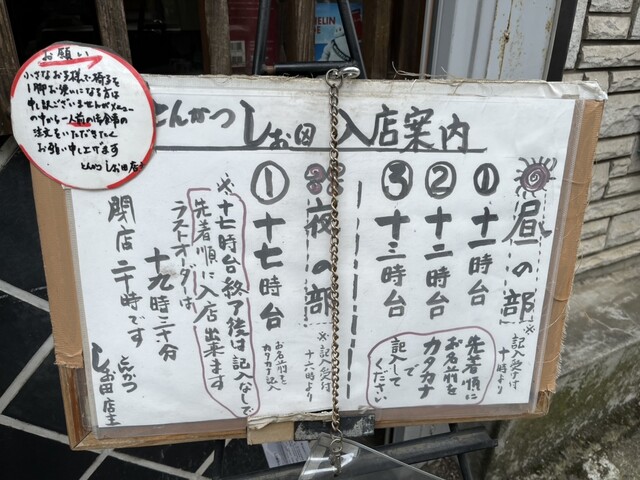 お願い
小さなお子様で椅子を
1脚お使いになる方は
申し訳ございませんがメニュー
の中から一人前の御食事の
注文をいただきたく
お願い申し上げます
とんかつ しお田 店主
とんかつ しお田 入店案内
昼の部
※記入受付
十時より
① 十一時台
② 十二時台
③ 十三時台
先着順に
お名前を
カタカナ
で
記入して
ください
夜の部
※記入受付
十六時より
① 十七時台
お名前を
カタカナ記入
※十七時台終了後は記入なしで
先着順に入店出来ます
ラストオーダーは
十九時三十分
閉店二十時です
とんかつ
しお田 店主